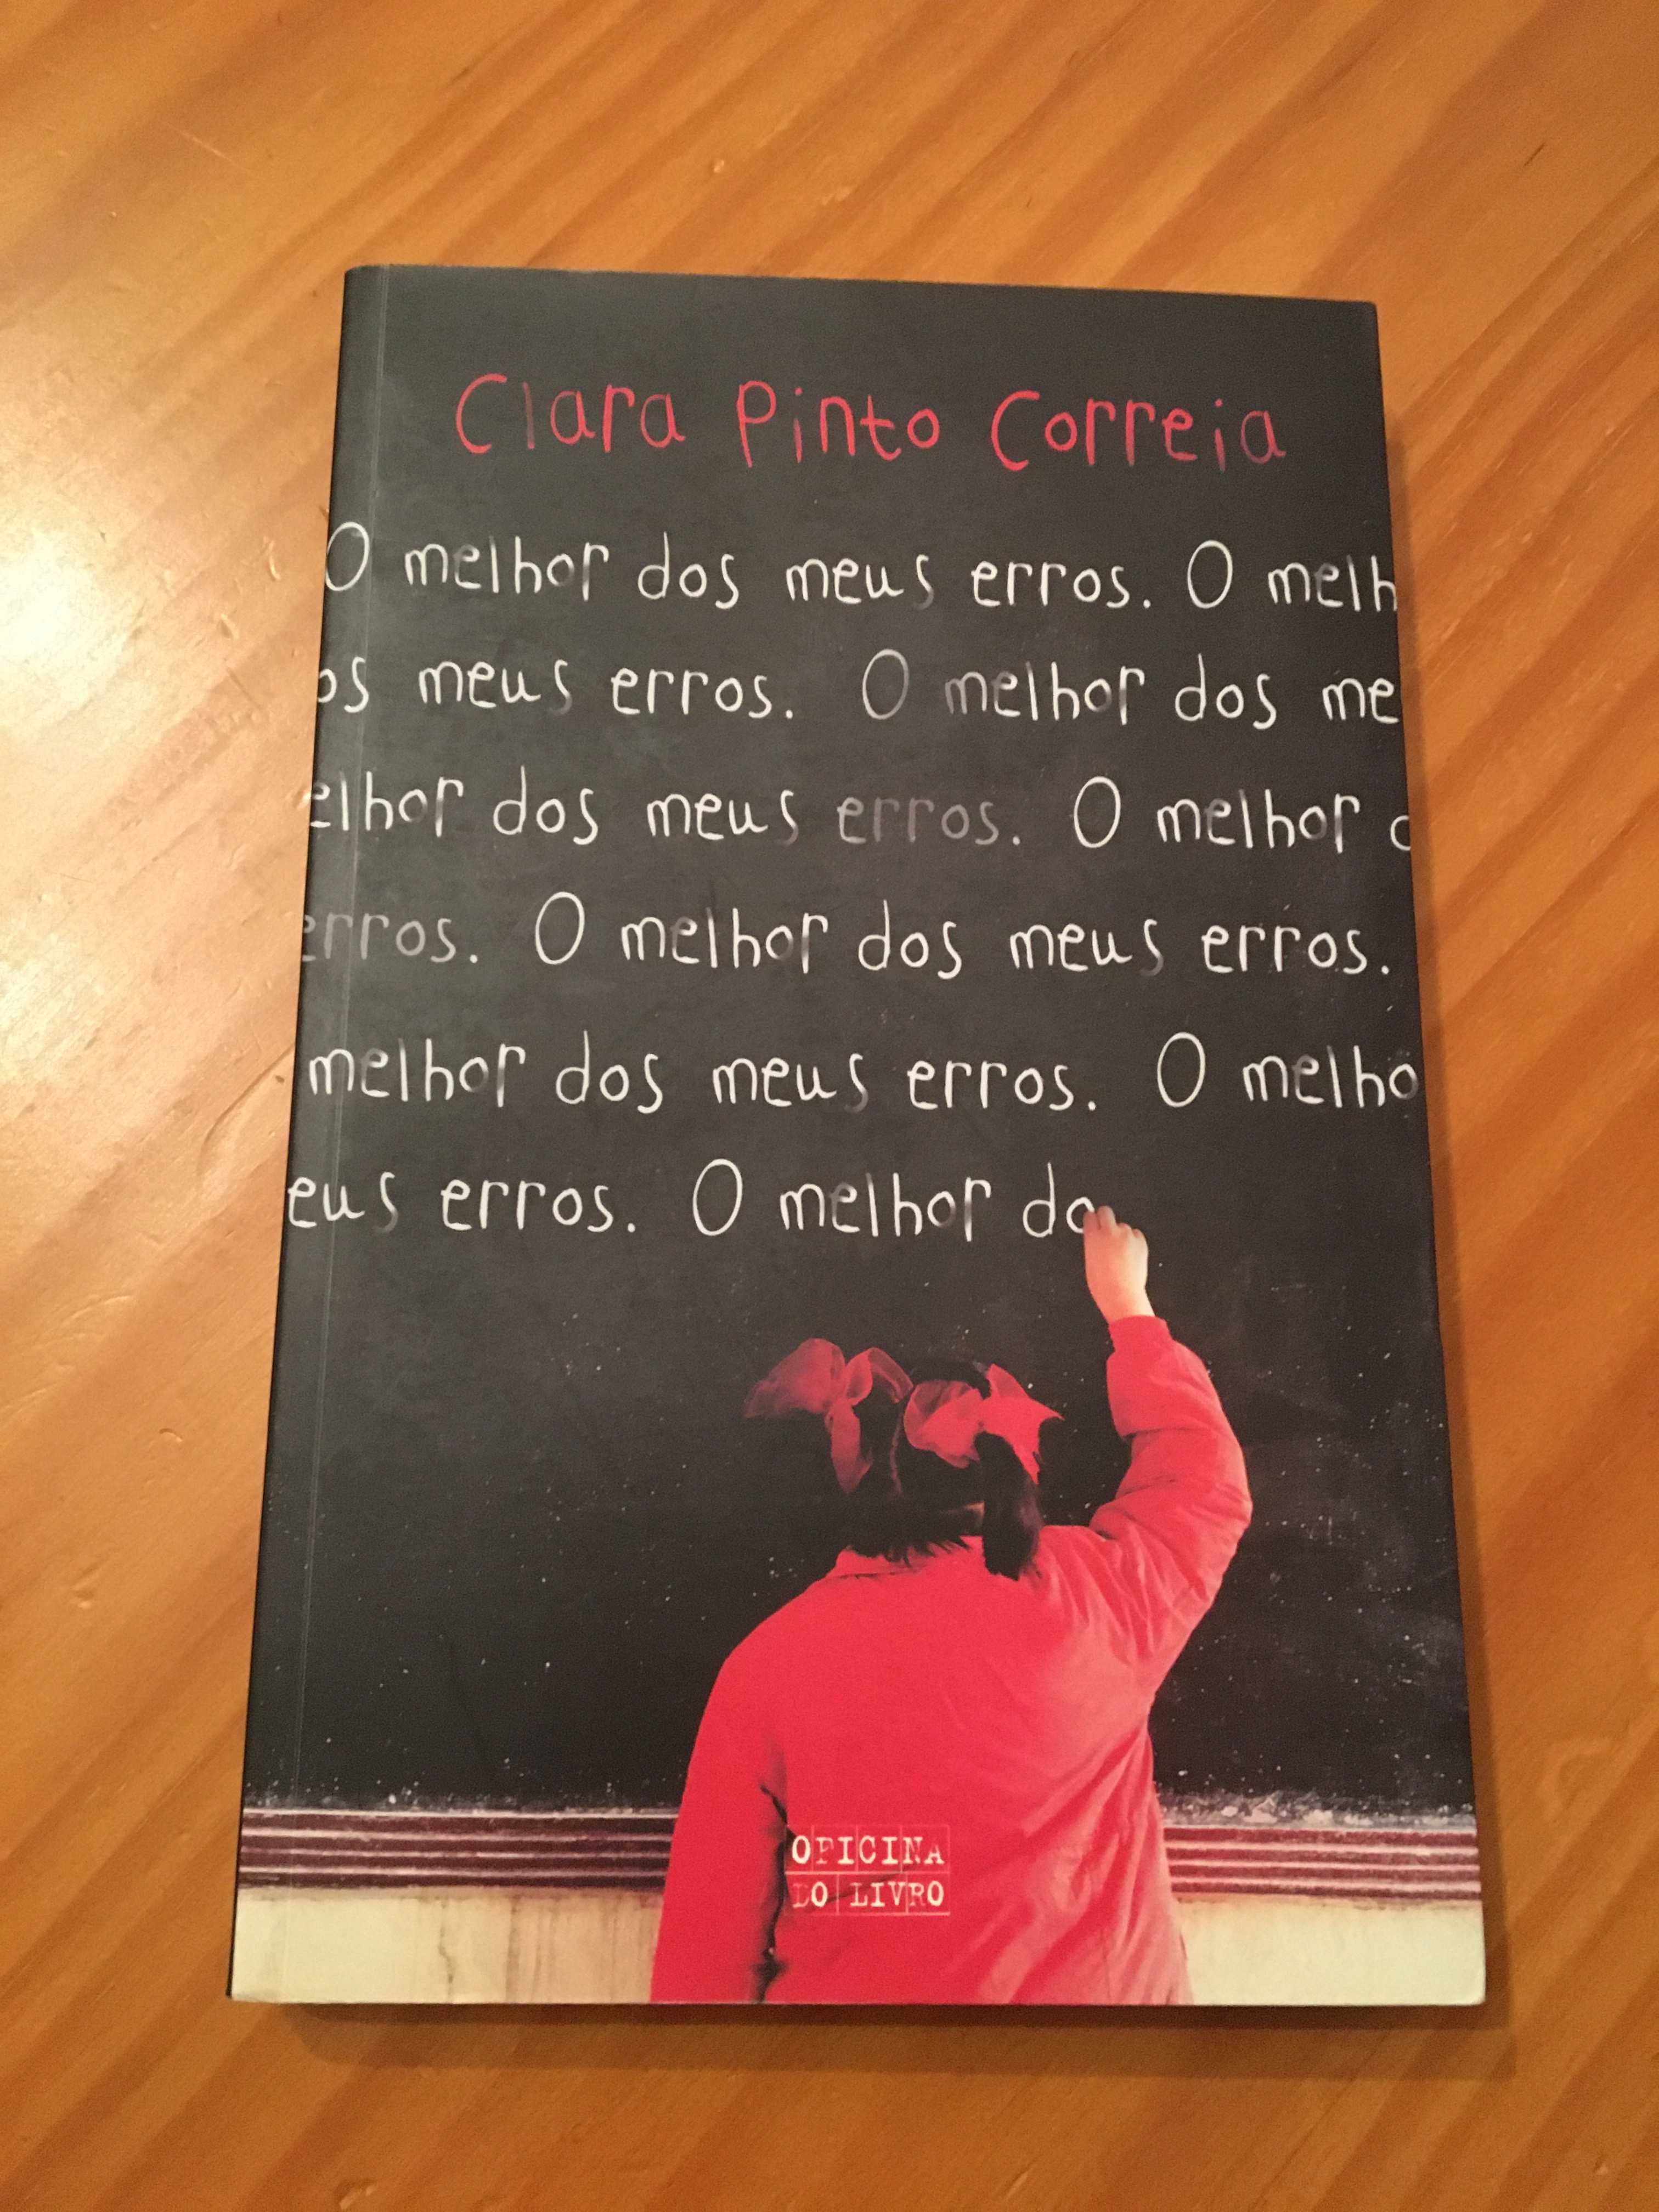 Clara Pinto Correia
O melhor dos meus erros. O melh
os meus erros. O melhor dos me
elhor dos meus erros. O melhor d
erros. O melhor dos meus erros.
melhor dos meus erros. O melho
eus erros. O melhor do
OFICINA
DO LIVRO